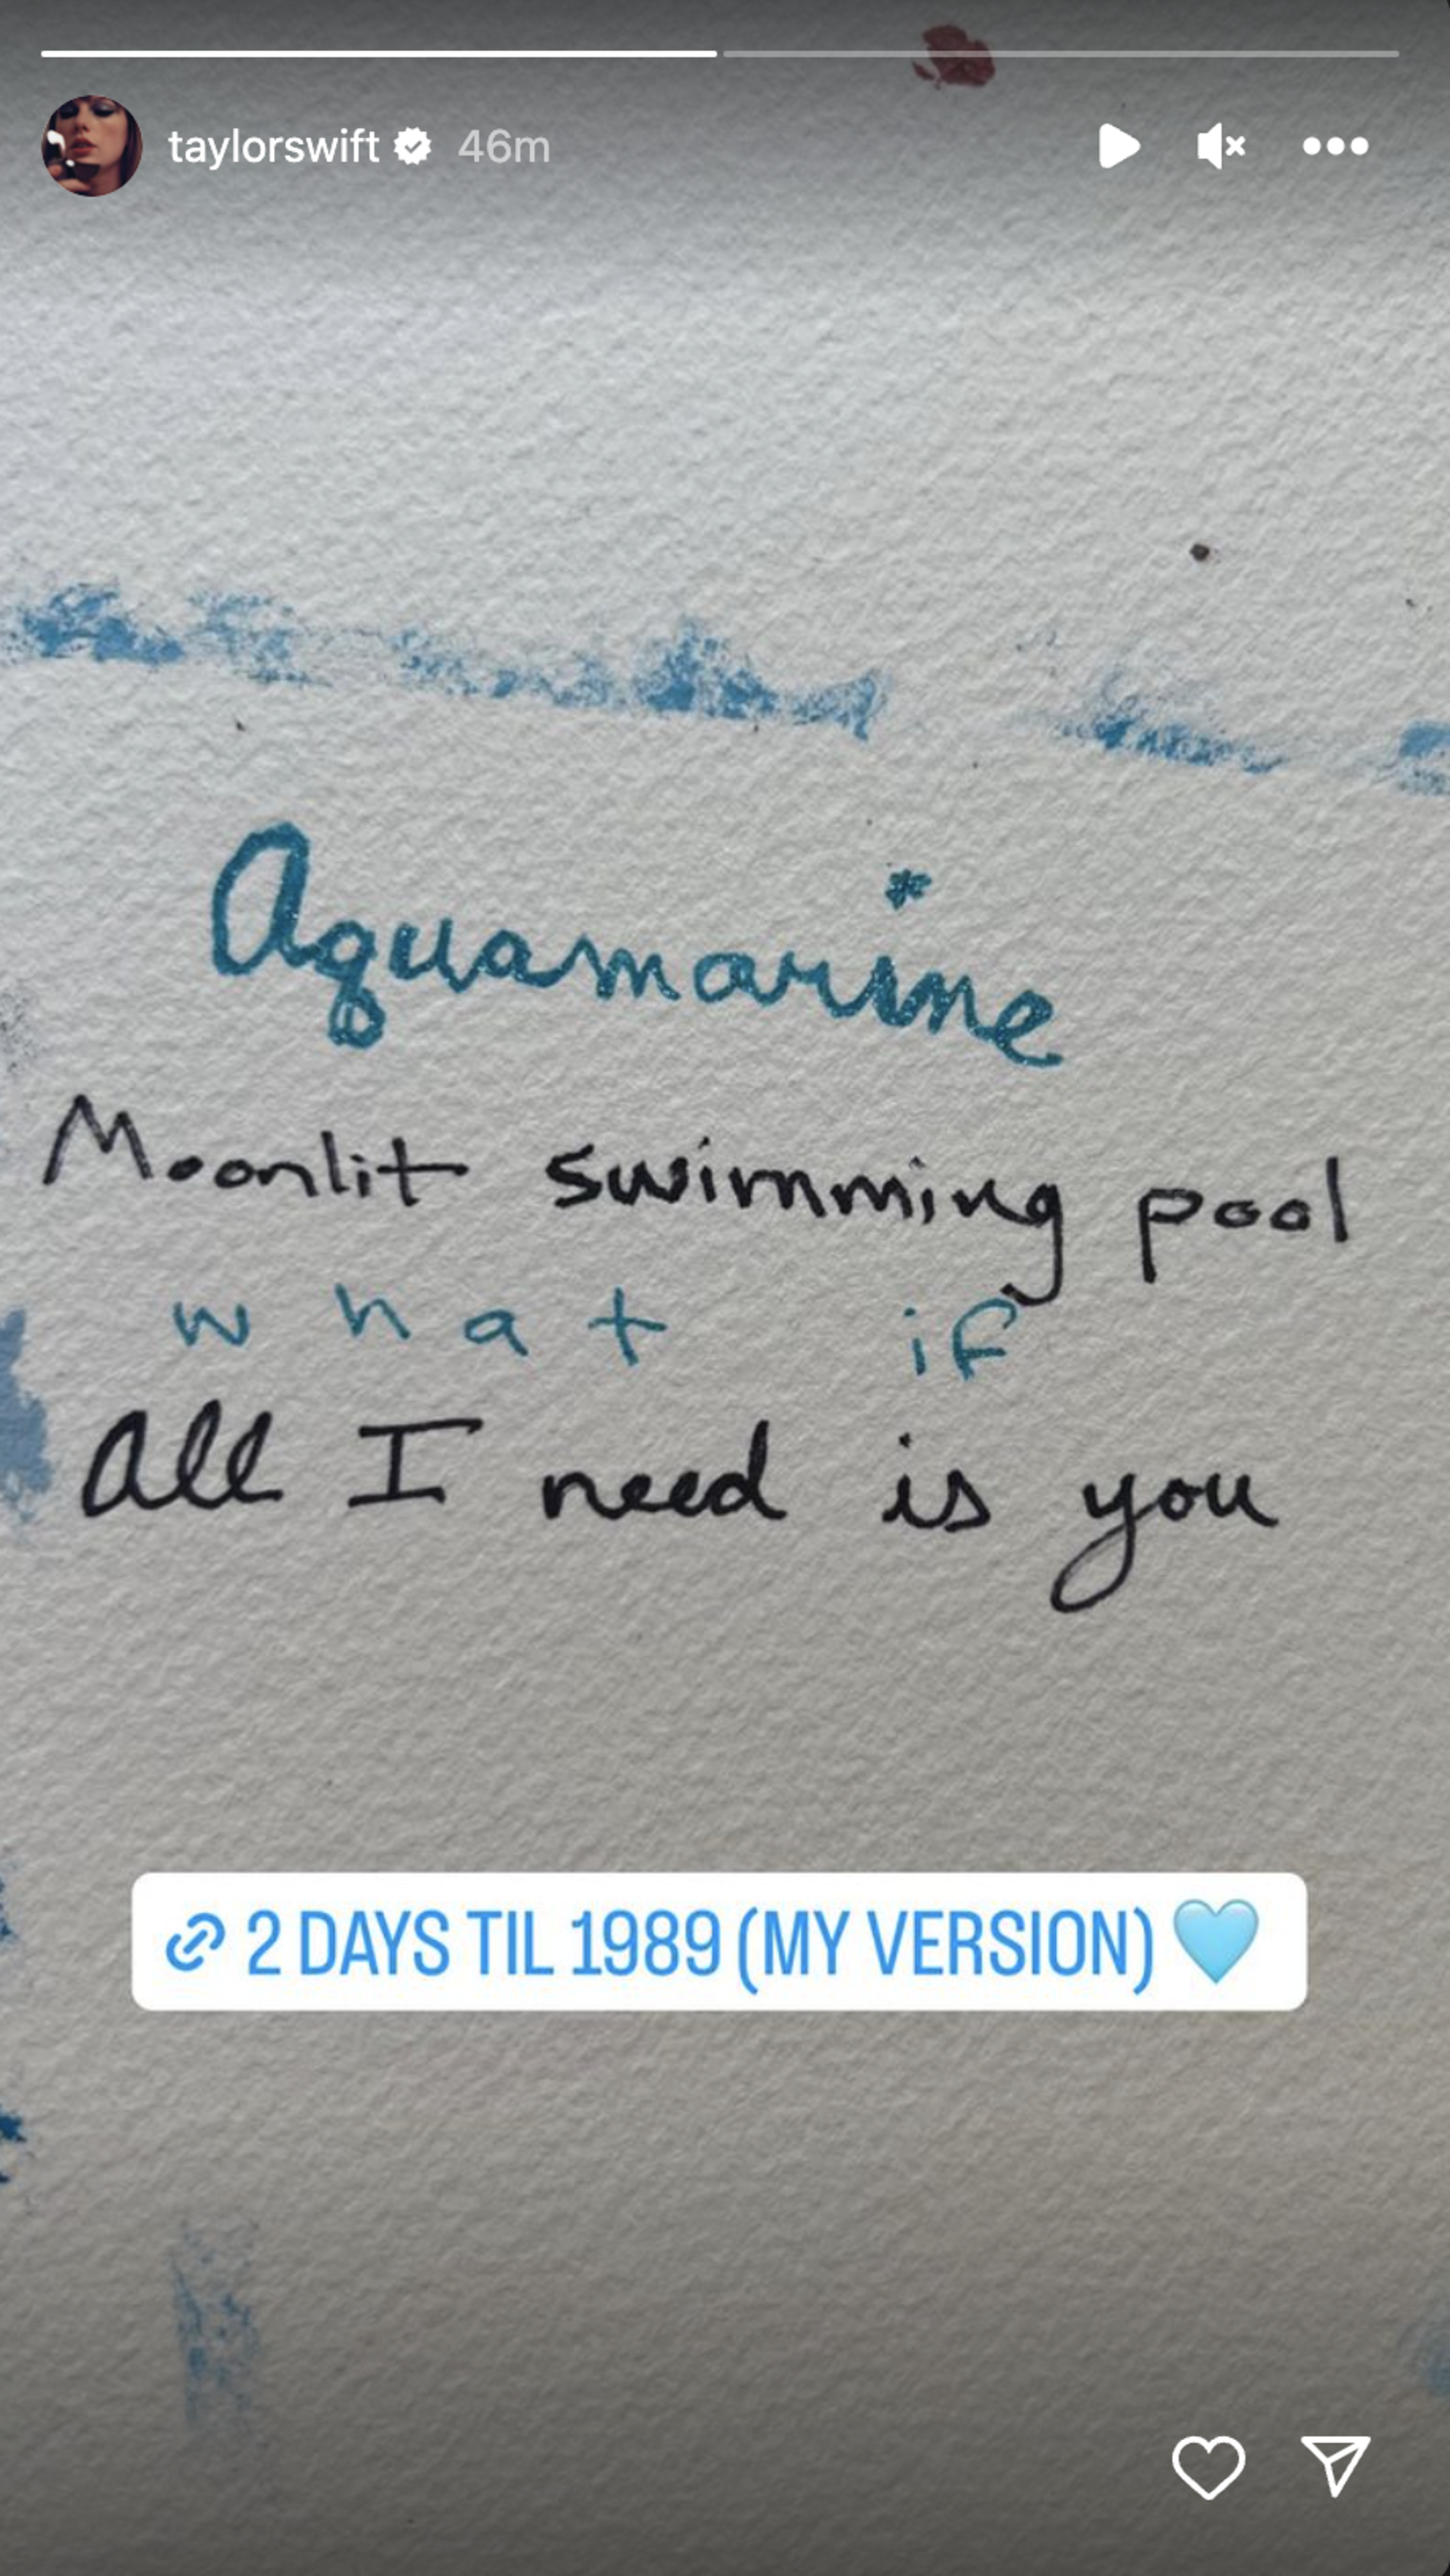 taylorswift 46m
Aquamarine
Moonlit swimming pool
what if
All I need is you
2 DAYS TIL 1989 (MY VERSION) 🩵